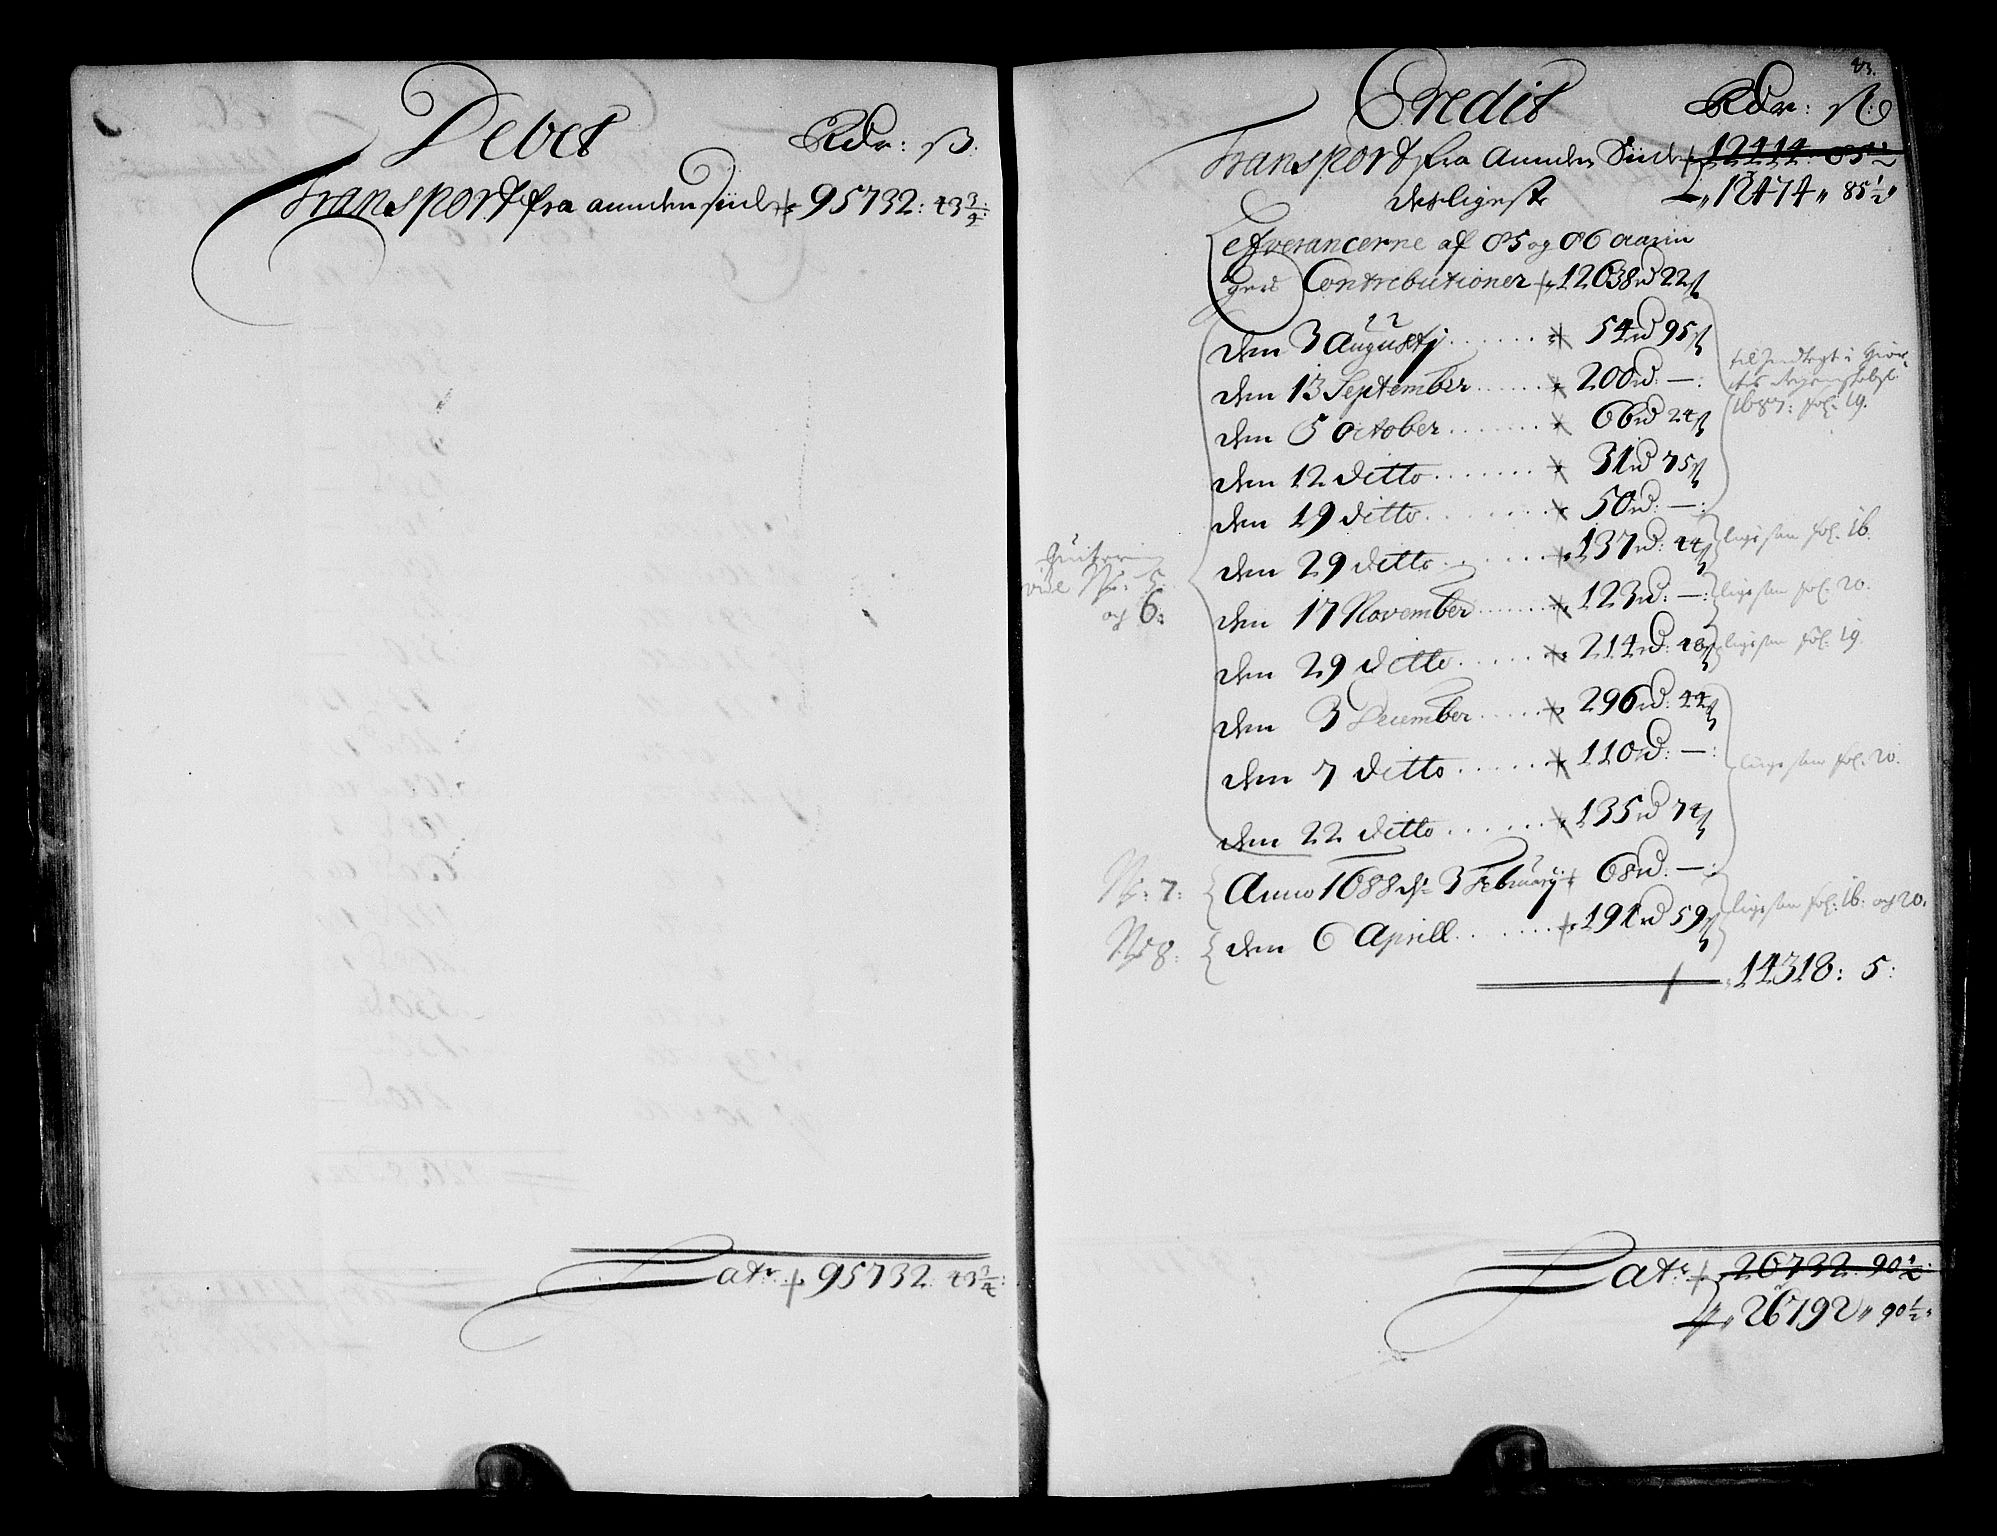 Debet Rdr: ß:
Transport fra anden Siide 95732: 43 3/4:
Late 95732: 43 3/4:
83.
Credit Rdr: ß:
Transport fra Anden Siide 12414: 85 1/2
desligeste 12474 85 1/2
Lefverancerne af 85 og 86 aarin
gers Contributioner 12638 rd 22 ß
den 3 Augustj 54 rd 95 ß
den 13 September 200 rd: —:
den 5 October 66 rd 24 ß
den 12 ditto 31 rd 75 ß
den 19 ditto 50 rd: —:
den 29 ditto 137 rd: 24 ß
den 17 November 123 rd: —:
den 29 ditto 214 rd: 28 ß
den 3 December 296 rd: 44 ß
den 7 ditto 110 rd: —:
den 22 ditto 135 rd 74 ß
Anno 1688 d: 3 February 68 rd: —:
den 6 Aprill 191 rd 59 ß
14318: 5:
vide No: 5
og 6:
No: 7:
No 8:
1687: fol: 19.
ligesaa fol: 16.
ligesaa fol: 20.
ligesaa fol: 19.
ligesaa fol: 20.
ligesaa fol: 16. og 20.
Late 26732: 90 1/2:
26792 90 1/2